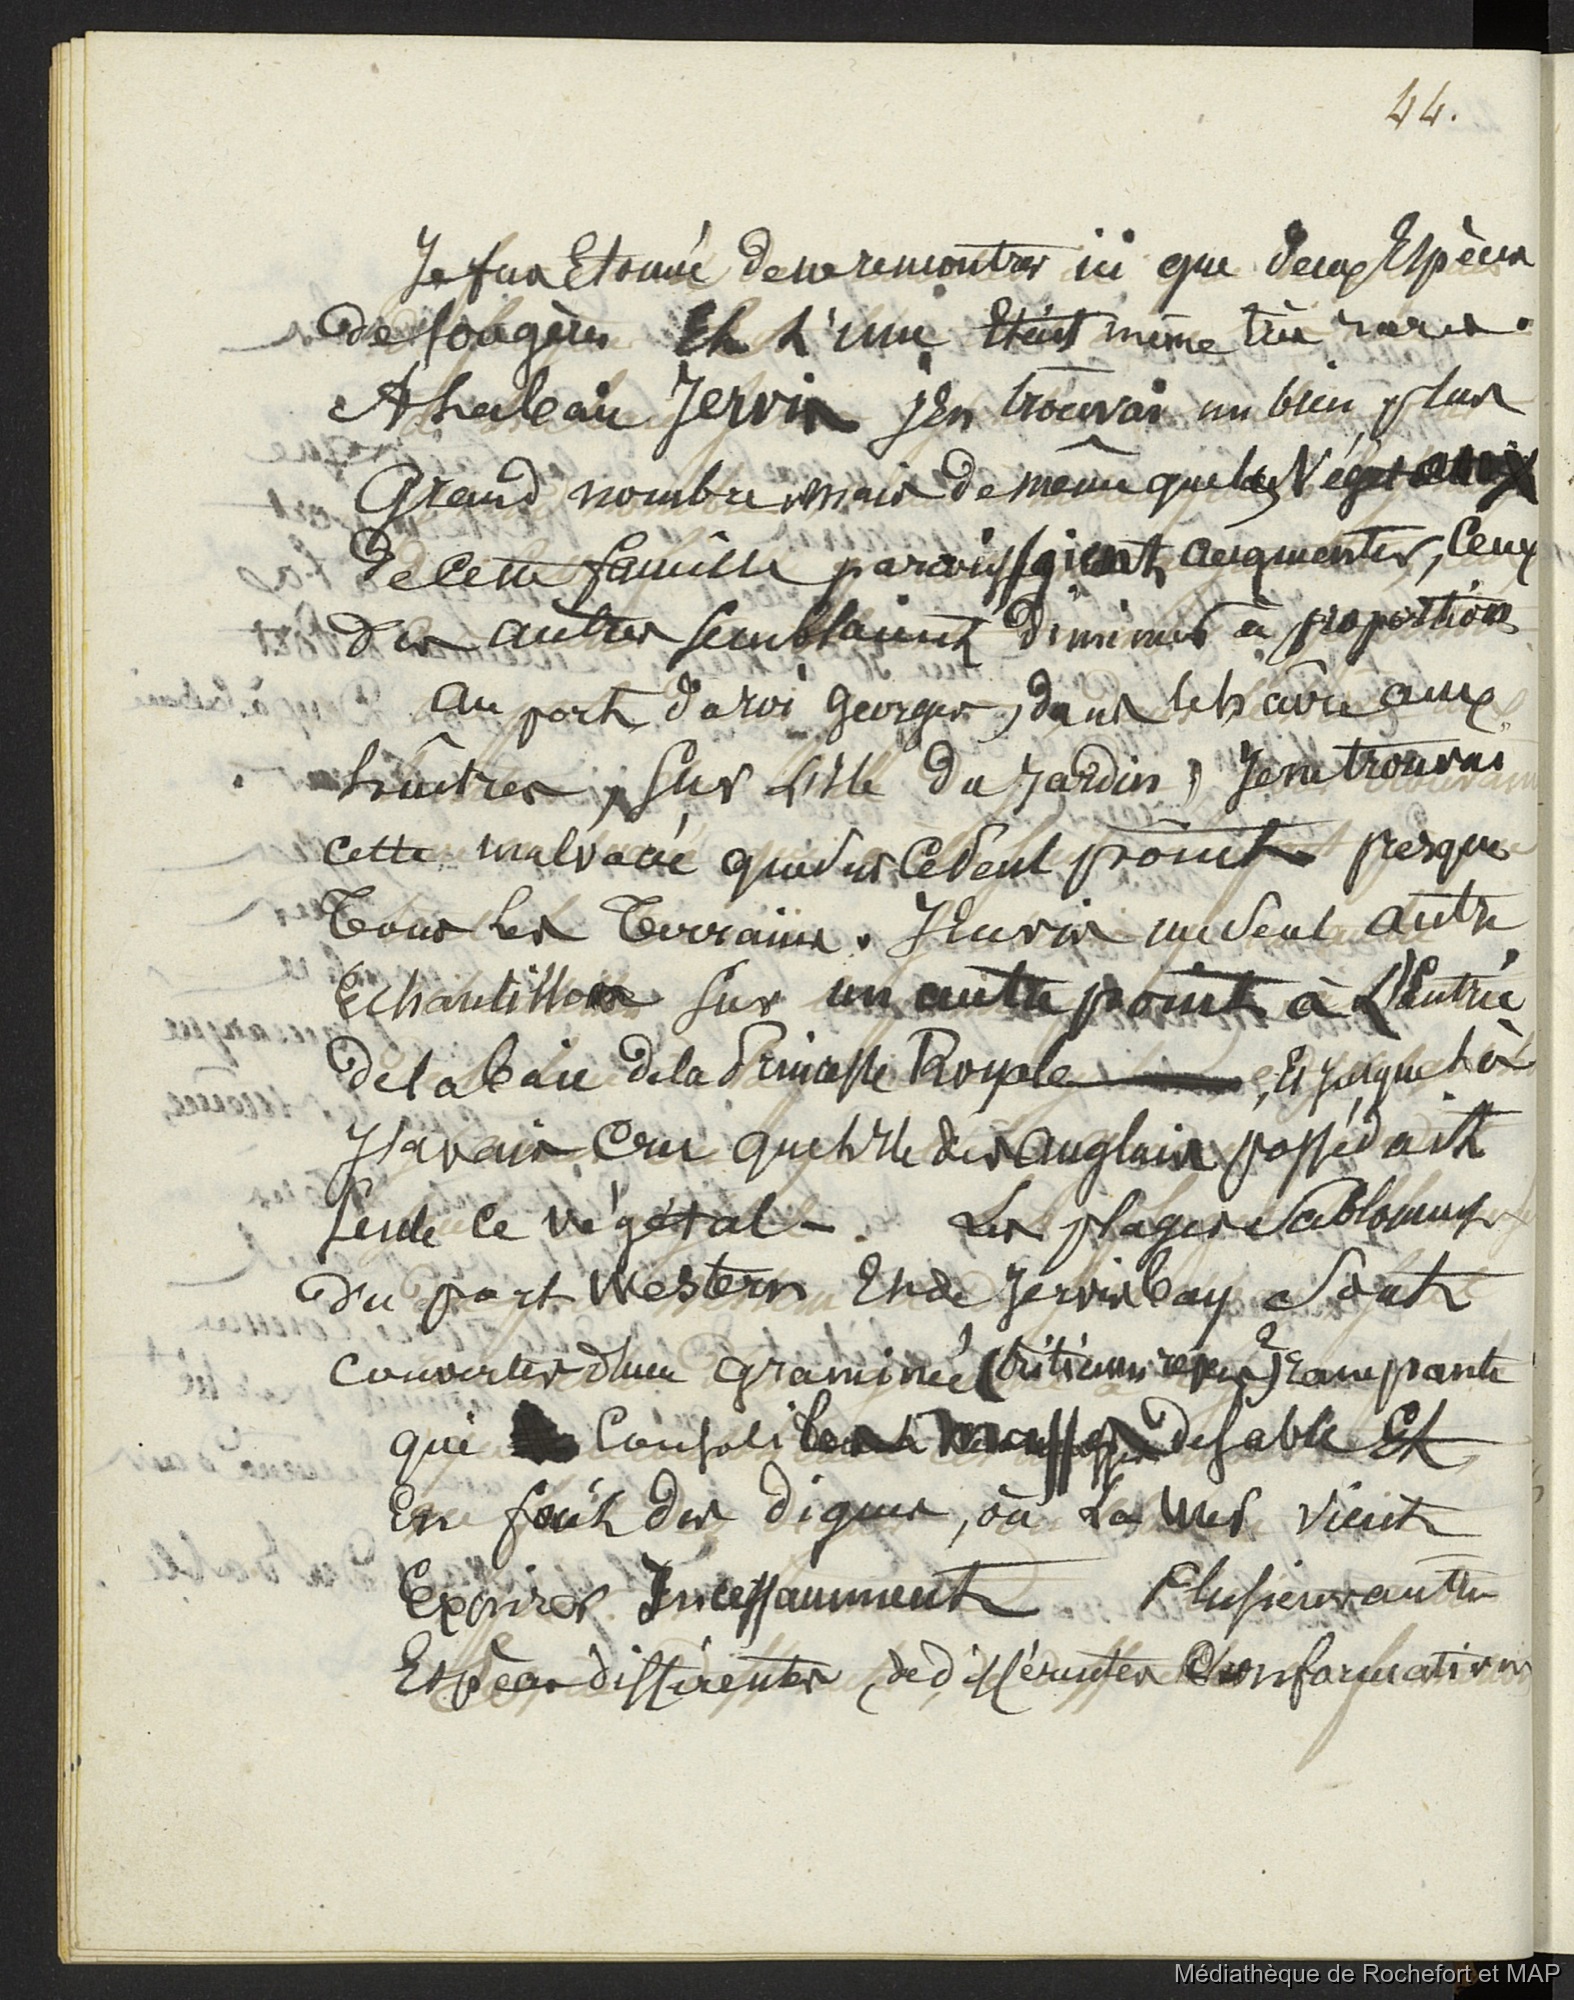 44.
Je fus Etonné de ne rencontrer ici que deux Espèces
de fougères Et L'une Etait même très rares.
A la baie Jervis j'En trouvai un bien plus
Grand nombre mais de même que les Végétaux
de cette famille paraissaient augmenter, Ceux
des autres semblaient diminuer à proportion
au port du roi Georges, dans le hâvre aux
huîtres, sur L'isle du Jardin, Je ne trouvai
cette malvacée qui presque
Tous les Terrains. J'En vis un seul autre
Echantillon sur un autre point à L'Entrée
de la baie de la Princesse Royale, Et jusque là
J'avais Cru que l'isle des anglais possédait
seule ce végétal. Les plages sablonneux
du port Western Et de Jervis bay sont
couvertes d'une Graminée (triticum repens?) rampante
qui masses de sable Et
En fait des digues, où La mer vient
Expirer Incessamment Plusieurs autres
Espèces différentes, de différentes Conformations
Médiathèque de Rochefort et MAP